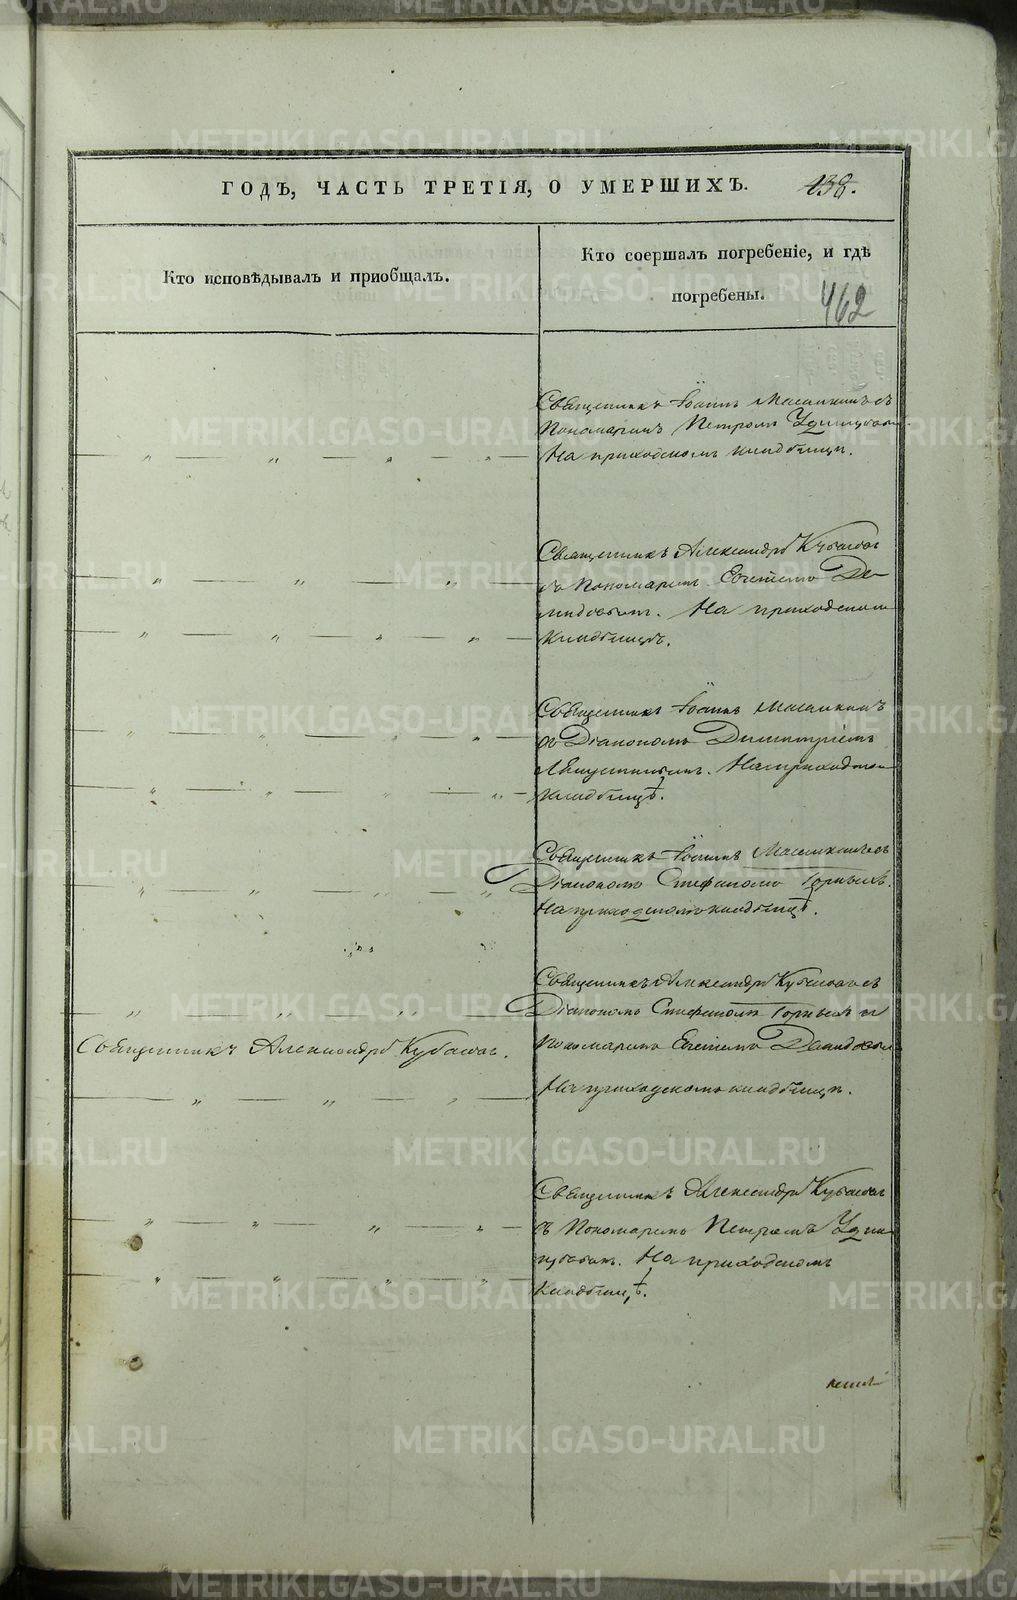 ГОДЪ, ЧАСТЬ ТРЕТІЯ, О УМЕРШИХЪ. 138.
Кто исповѣдывалъ и приобщалъ.
Кто соершалъ погребеніе, и гдѣ
погребены.
462
Священникъ Іоаннъ съ
Пономаремъ Петромъ
На приходскомъ кладбищѣ.
Священникъ Александръ Кубасовъ
съ Пономаремъ Евгеніемъ Де-
мидовымъ. На приходскомъ
кладбищѣ.
Священникъ Іоаннъ
съ Діакономъ Димитріемъ
На приходскомъ
кладбищѣ.
Священникъ Іоаннъ съ
Діакономъ Стефаномъ Горныхъ.
На приходскомъ кладбищѣ.
Священникъ Александръ Кубасовъ съ
Діакономъ Стефаномъ Горныхъ и
Священникъ Александръ Кубасовъ.
Пономаремъ Евгеніемъ
На приходскомъ кладбищѣ.
Священникъ Александръ Кубасовъ
съ Пономаремъ Петромъ
На приходскомъ
кладбищѣ.
METRIKI.GASO-URAL.RU